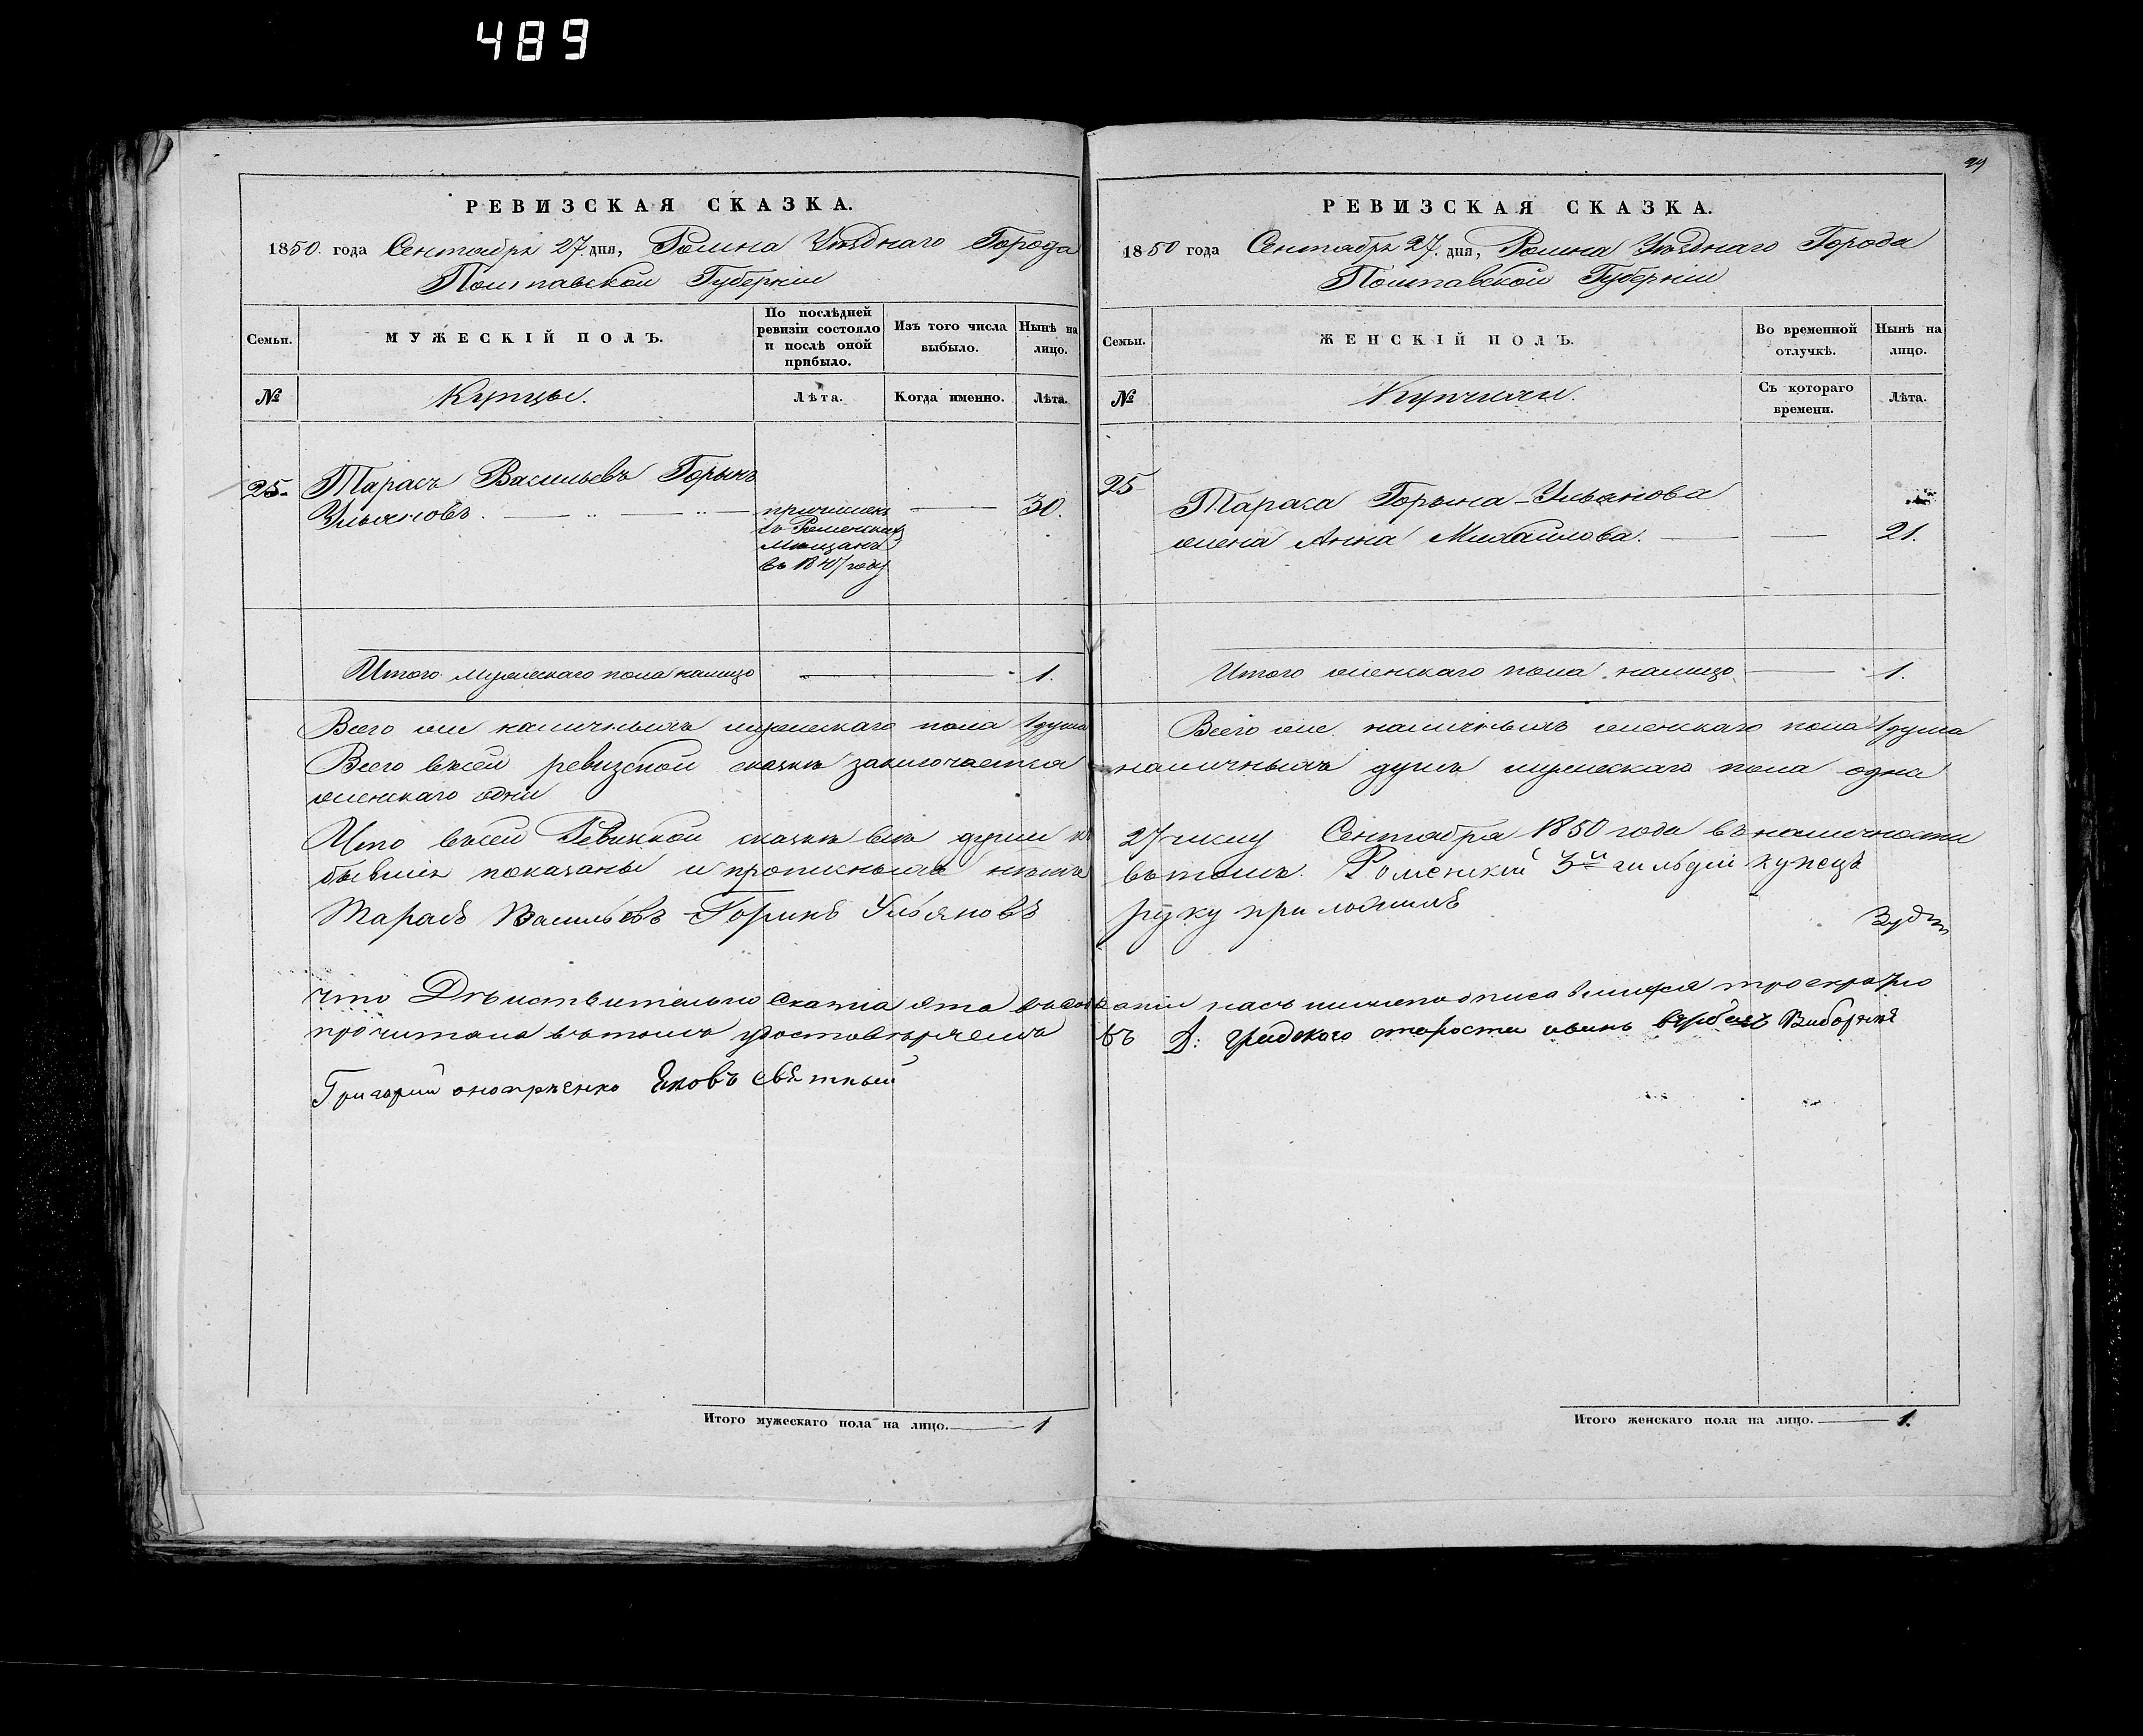 489
29
РЕВИЗСКАЯ СКАЗКА.
1850. года Сентября 27. дня, Ромна Уѣзднаго Города
Полтавской Губерніи
Семьи.
МУЖЕСКІЙ ПОЛЪ.
По послѣдней ревизіи состояло и послѣ оной прибыло.
Изъ того числа выбыло.
Нынѣ на лицо.
№
Купцы.
Лѣта.
Когда именно.
Лѣта.
25.
Тарасъ Васильевъ Горынъ
Ульяновъ.
причисленъ
съ Роменскихъ
Мещанъ
въ 1847 году
30.
Итого мужескаго пола налицо 1.
Всего же наличныхъ мужескаго пола 1 душа
РЕВИЗСКАЯ СКАЗКА.
1850 года Сентября 27. дня, Ромна Уѣзднаго Города
Полтавской Губерніи
Семьи.
ЖЕНСКІЙ ПОЛЪ.
Во временной отлучкѣ.
Нынѣ на лицо.
№
Купчихи.
Съ котораго времени.
Лѣта.
25
Тараса Горына-Ульянова
жена Анна Михайлова. 21.
Итого женскаго пола налицо 1.
Всего же наличныхъ женскаго пола 1 душа
Всего въ сей ревизской сказкѣ заключается наличныхъ душъ мужескаго пола одна
женскаго одна
Что въ сей Ревизкой сказкѣ всѣ души къ 27 числу Сентября 1850 года въ наличности
бывшія показаны и прописныхъ нѣтъ въ томъ Роменскій 3й гильдіи купецъ
Тарасъ Васильевъ Горинъ Ульяновъ руку приложилъ
что Дѣйствительно Скаска эта
прочитана въ томъ удостовѣряемъ Д: градского старосты
Григорій Яковъ
Итого мужескаго пола на лицо. 1
Итого женскаго пола на лицо. 1.